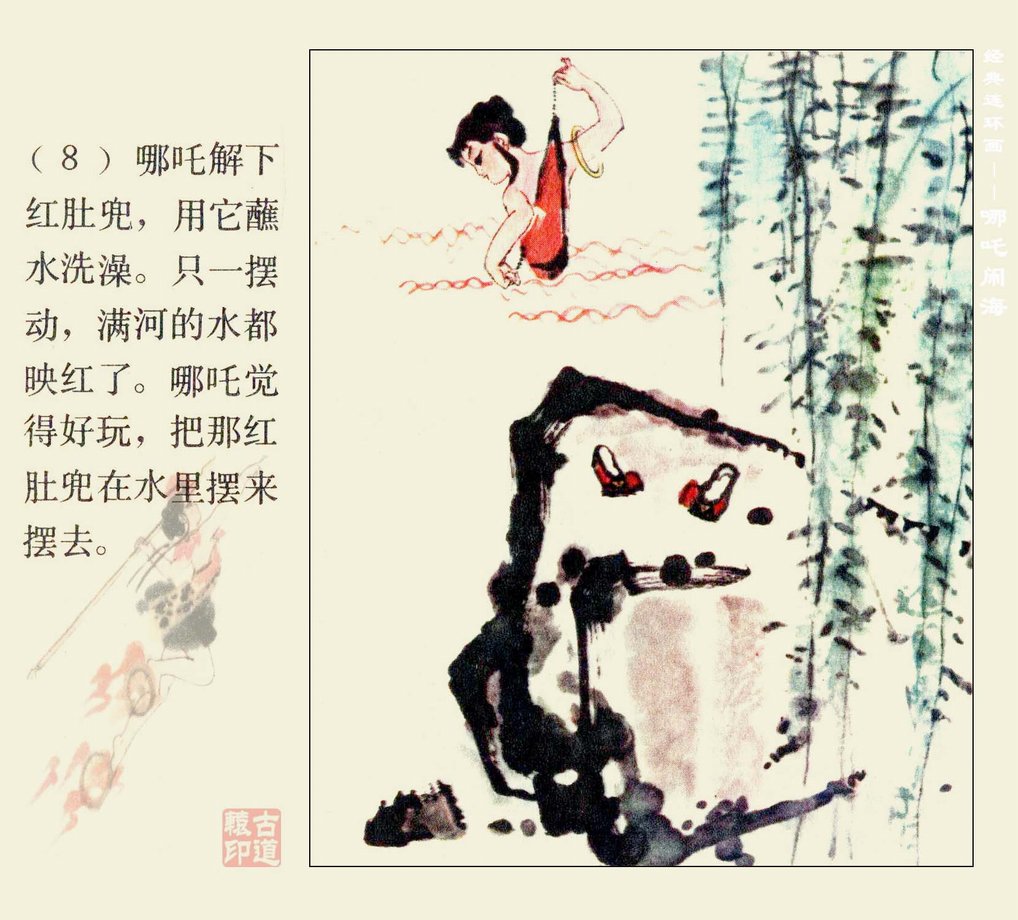 （8）哪吒解下
红肚兜，用它蘸
水洗澡。只一摆
动，满河的水都
映红了。哪吒觉
得好玩，把那红
肚兜在水里摆来
摆去。
经典连环画——哪吒闹海
古道
辕印